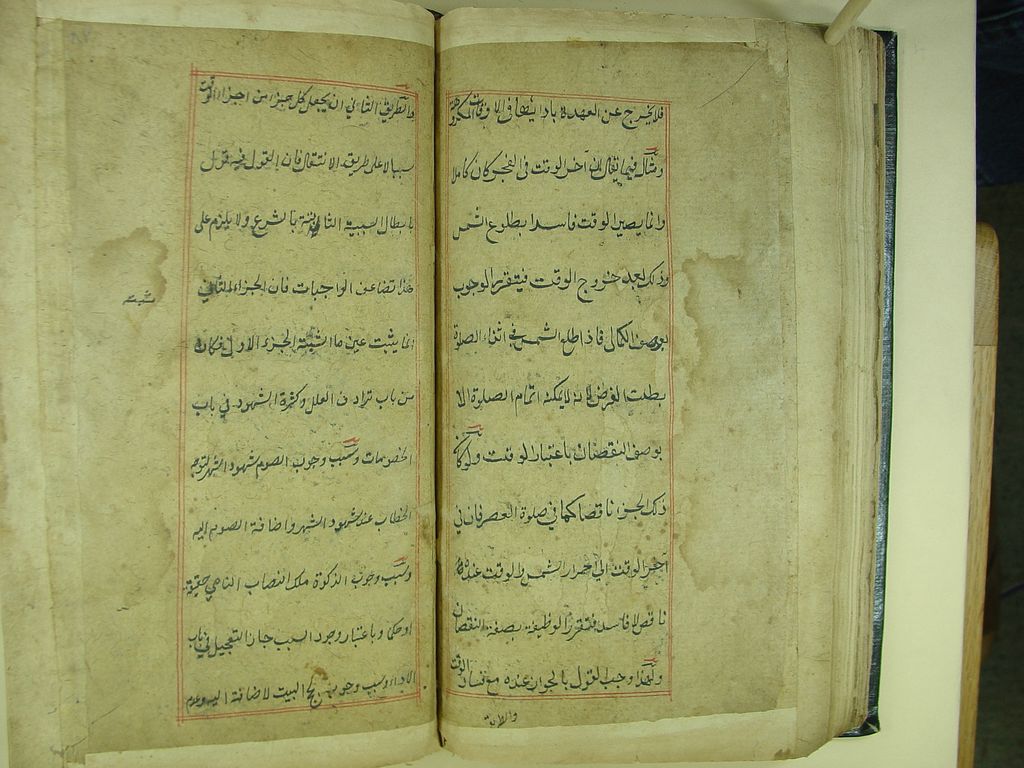 فلا يخرج عن العهدة بادائها فى الاوقات المكروهة
ومثاله فيما يقال ان آخر الوقت فى الفجر كان كاملا
وانما يصير الوقت فاسدا بطلوع الشمس
وذلك بعد خروج الوقت فيتقرر الوجوب
بوصف الكمال فاذا طلع الشمس فى اثناء الصلوة
بطلت الفرض لانه لا يمكنه اتمام الصلوة الا
بوصف النقصان باعتبار الوقت ولو كان
ذلك الجزء ناقصا كما فى صلوة العصر فان فى
آخر الوقت الى احمرار الشمس والوقت عنده
ناقص لا فاسد فيتقرر الوظيفة بصفة النقصان
ولهذا وجب القول بالجواز عنده مع فساد الوقت
والطريق
والطريق الثانى ان يجعل كل جزء من اجزاء الوقت
سببا لا على طريق الانتقال فان القول به قول
بابطال السببية الثابتة بالشرع ولا يلزم على
هذا تضاعف الواجبات فان الجزء الثانى
انما يثبت عين ما اثبته الجزء الاول فكان
من باب ترادف العلل وكثرة الشهود فى باب
الخصومات وسبب وجوب الصوم شهود الشهر لتوجه
الخطاب عند شهود الشهر واضافة الصوم اليه
وسبب وجوب الزكوة ملك النصاب النامى حقيقة
او حكما وباعتبار وجود السبب جاز التعجيل فى باب
الاداء وسبب وجوب الحج البيت لاضافته اليه وعدم